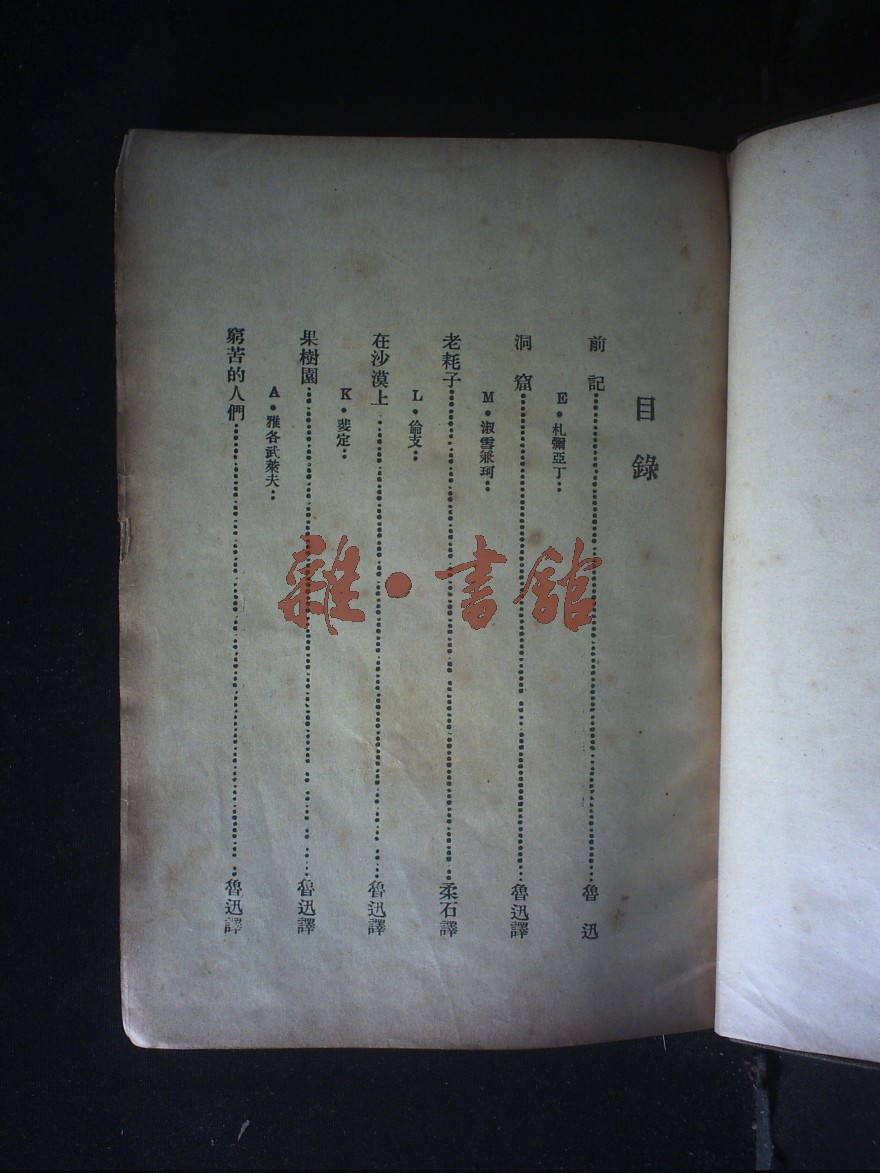 目錄
前記……魯迅
E·札彌亞丁：
洞窟……魯迅譯
M·淑雪兼珂：
老耗子……柔石譯
L·倫支：
在沙漠上……魯迅譯
K·斐定：
果樹園……魯迅譯
A·雅各武萊夫：
窮苦的人們……魯迅譯
雜·書館